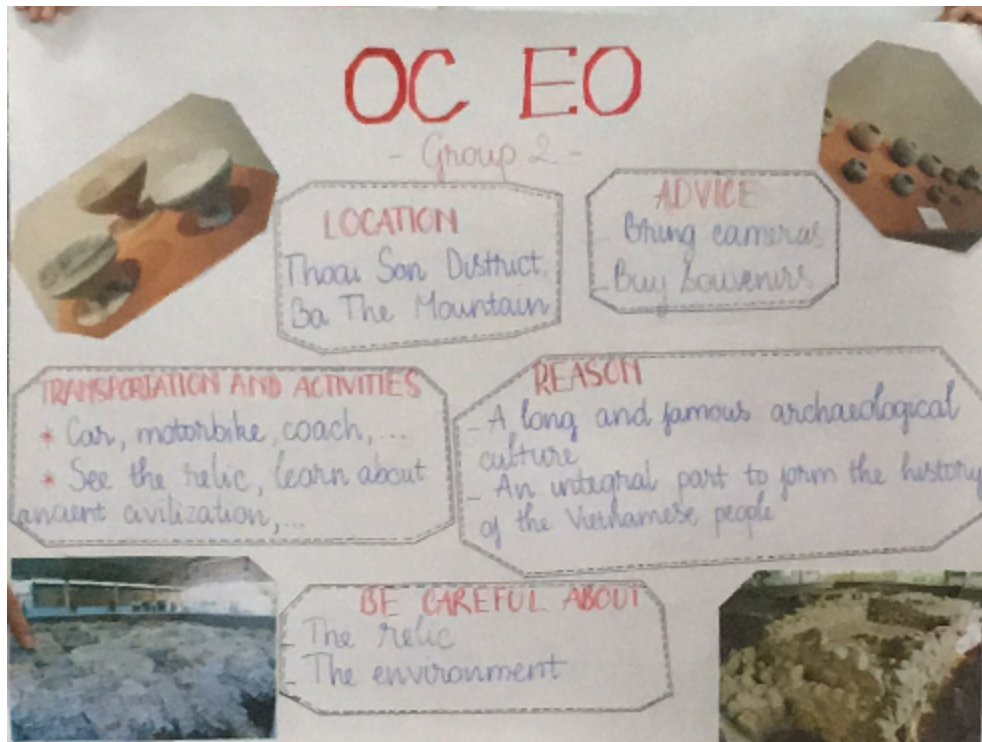 OC EO
- Group 2 -
LOCATION
Thoai Son District,
Ba The Mountain
ADVICE
- Bring cameras
- Buy souvenirs
TRANSPORTATION AND ACTIVITIES
* Car, motorbike, coach,...
* See the relic, learn about
ancient civilization,...
REASON
- A long and famous archaeological
culture
- An integral part to form the history
of the Vietnamese people
BE CAREFUL ABOUT
- The relic
- The environment